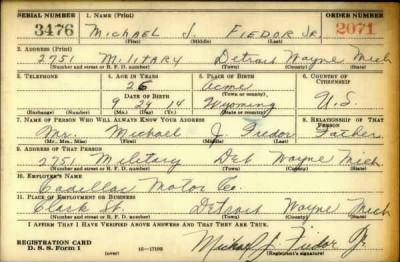 SERIAL NUMBER 1. NAME (Print) ORDER NUMBER
3476 MICHAEL J. FIEDOR JR. 2071
(First) (Middle) (Last)
2. ADDRESS (Print)
2751 Military Detroit Wayne Mich
(Number and street or R. F. D. number) (Town) (County) (State)
3. TELEPHONE 4. AGE IN YEARS 5. PLACE OF BIRTH 6. COUNTRY OF CITIZENSHIP
26 Acme
DATE OF BIRTH (Town or county)
9 29 14 Wyoming U.S.
(Exchange) (Number) (Mo.) (Day) (Yr.) (State or country)
7. NAME OF PERSON WHO WILL ALWAYS KNOW YOUR ADDRESS 8. RELATIONSHIP OF THAT PERSON
Mr. Michael J. Fiedor Father
(Mr., Mrs., Miss) (First) (Middle) (Last)
9. ADDRESS OF THAT PERSON
2751 Military Det Wayne Mich.
(Number and street or R. F. D. number) (Town) (County) (State)
10. EMPLOYER'S NAME
Cadillac Motor Co.
11. PLACE OF EMPLOYMENT OR BUSINESS
Clark St. Detroit Wayne Mich
(Number and street or R. F. D. number) (Town) (County) (State)
I AFFIRM THAT I HAVE VERIFIED ABOVE ANSWERS AND THAT THEY ARE TRUE.
REGISTRATION CARD
D. S. S. Form 1 (over) 16—17105 Michael J. Fiedor Jr.
(Registrant's signature)